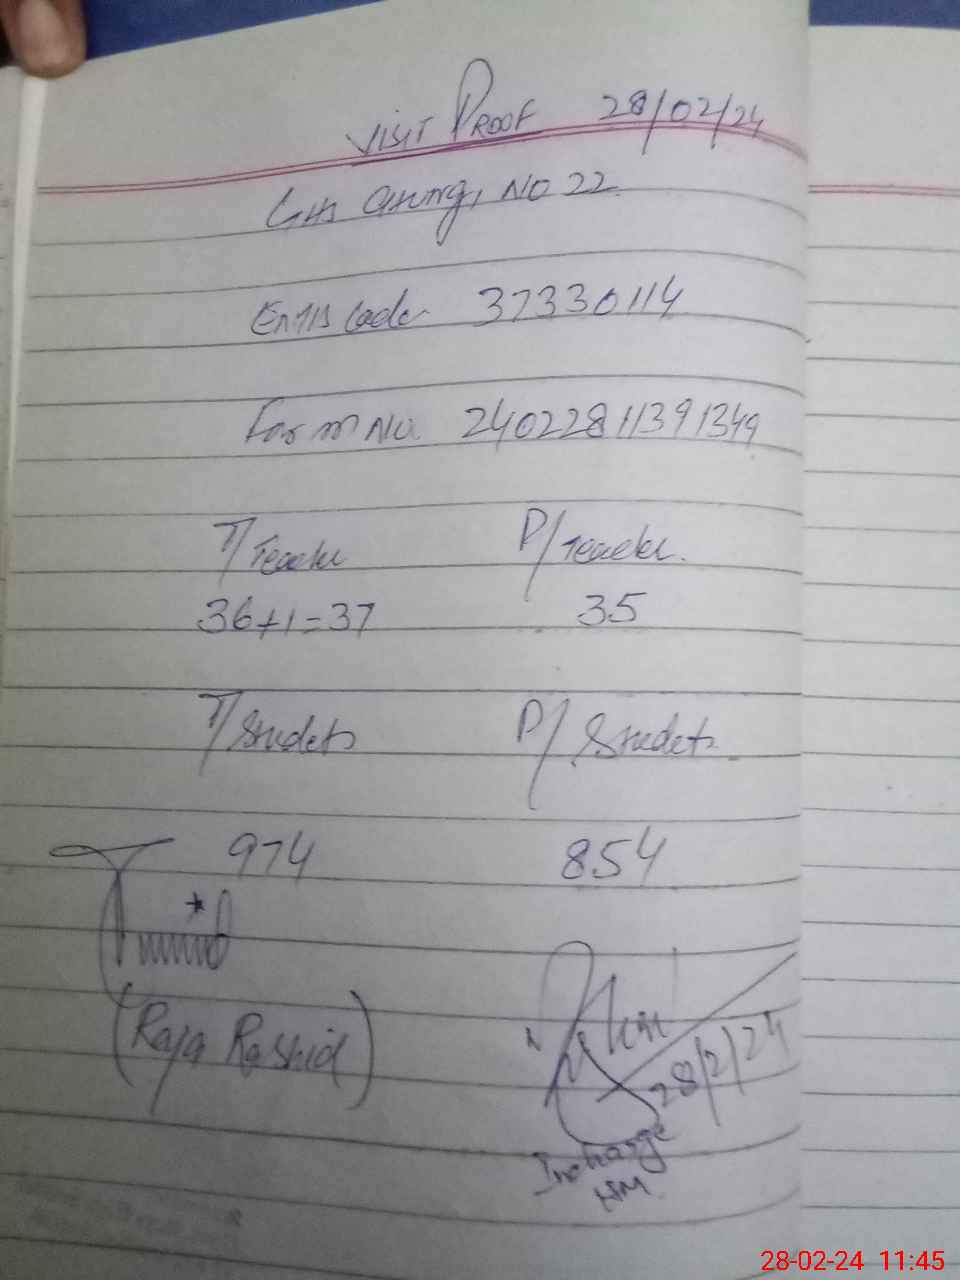 VISIT PROOF 28/02/24
GHS Chung, NO 22
EMIS Code 37330114
Form No. 24022811391349
T/Teacher P/Teacher.
36+1=37 35
T/Studets P/Studets.
974 854
(Raja Rashid)
28/2/24
Incharge
HM
28-02-24 11:45